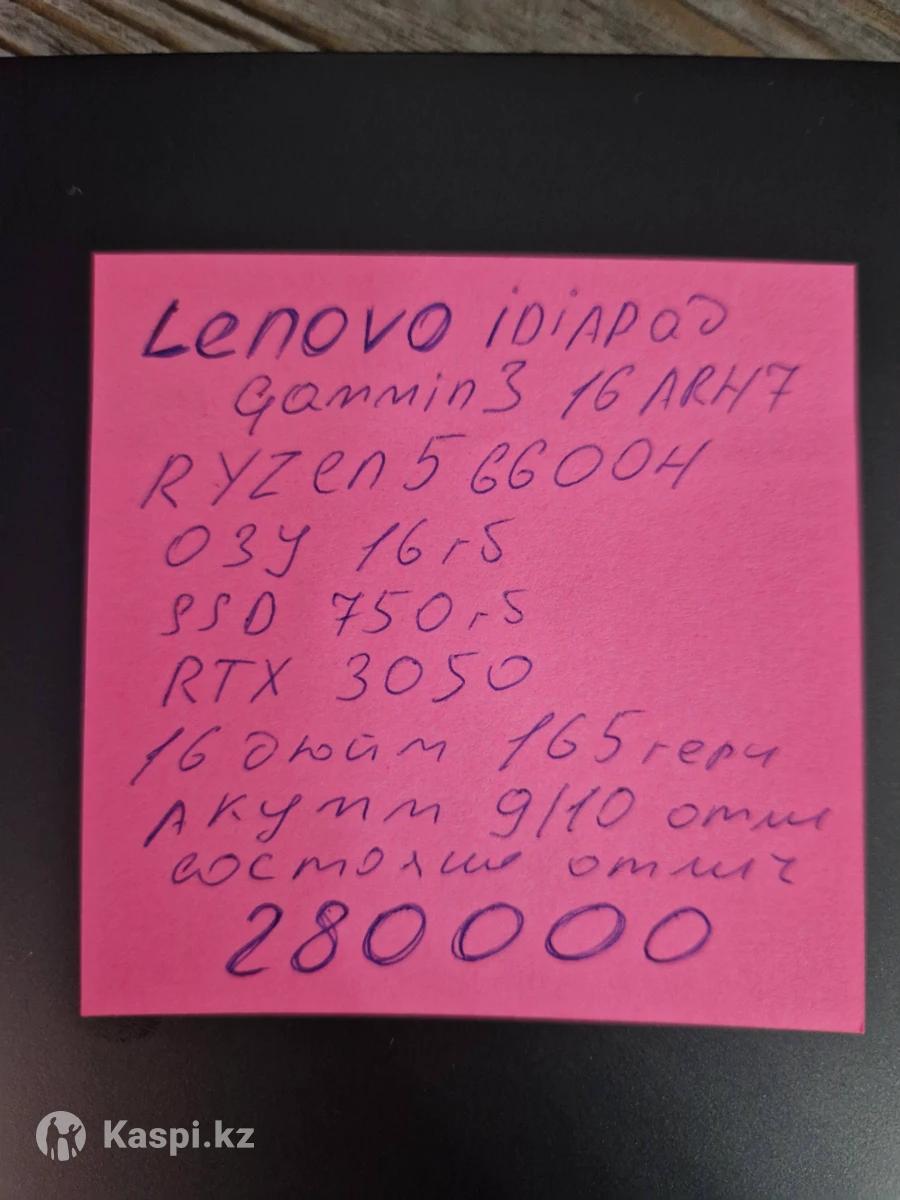 Lenovo iDiAPad
Gammin3 16ARH7
RYZen 5 6600H
ОЗУ 16гб
SSD 750гб
RTX 3050
16 дюйм 165герц
Акумм 9/10 отли
состояние отлич
280000
Kaspi.kz